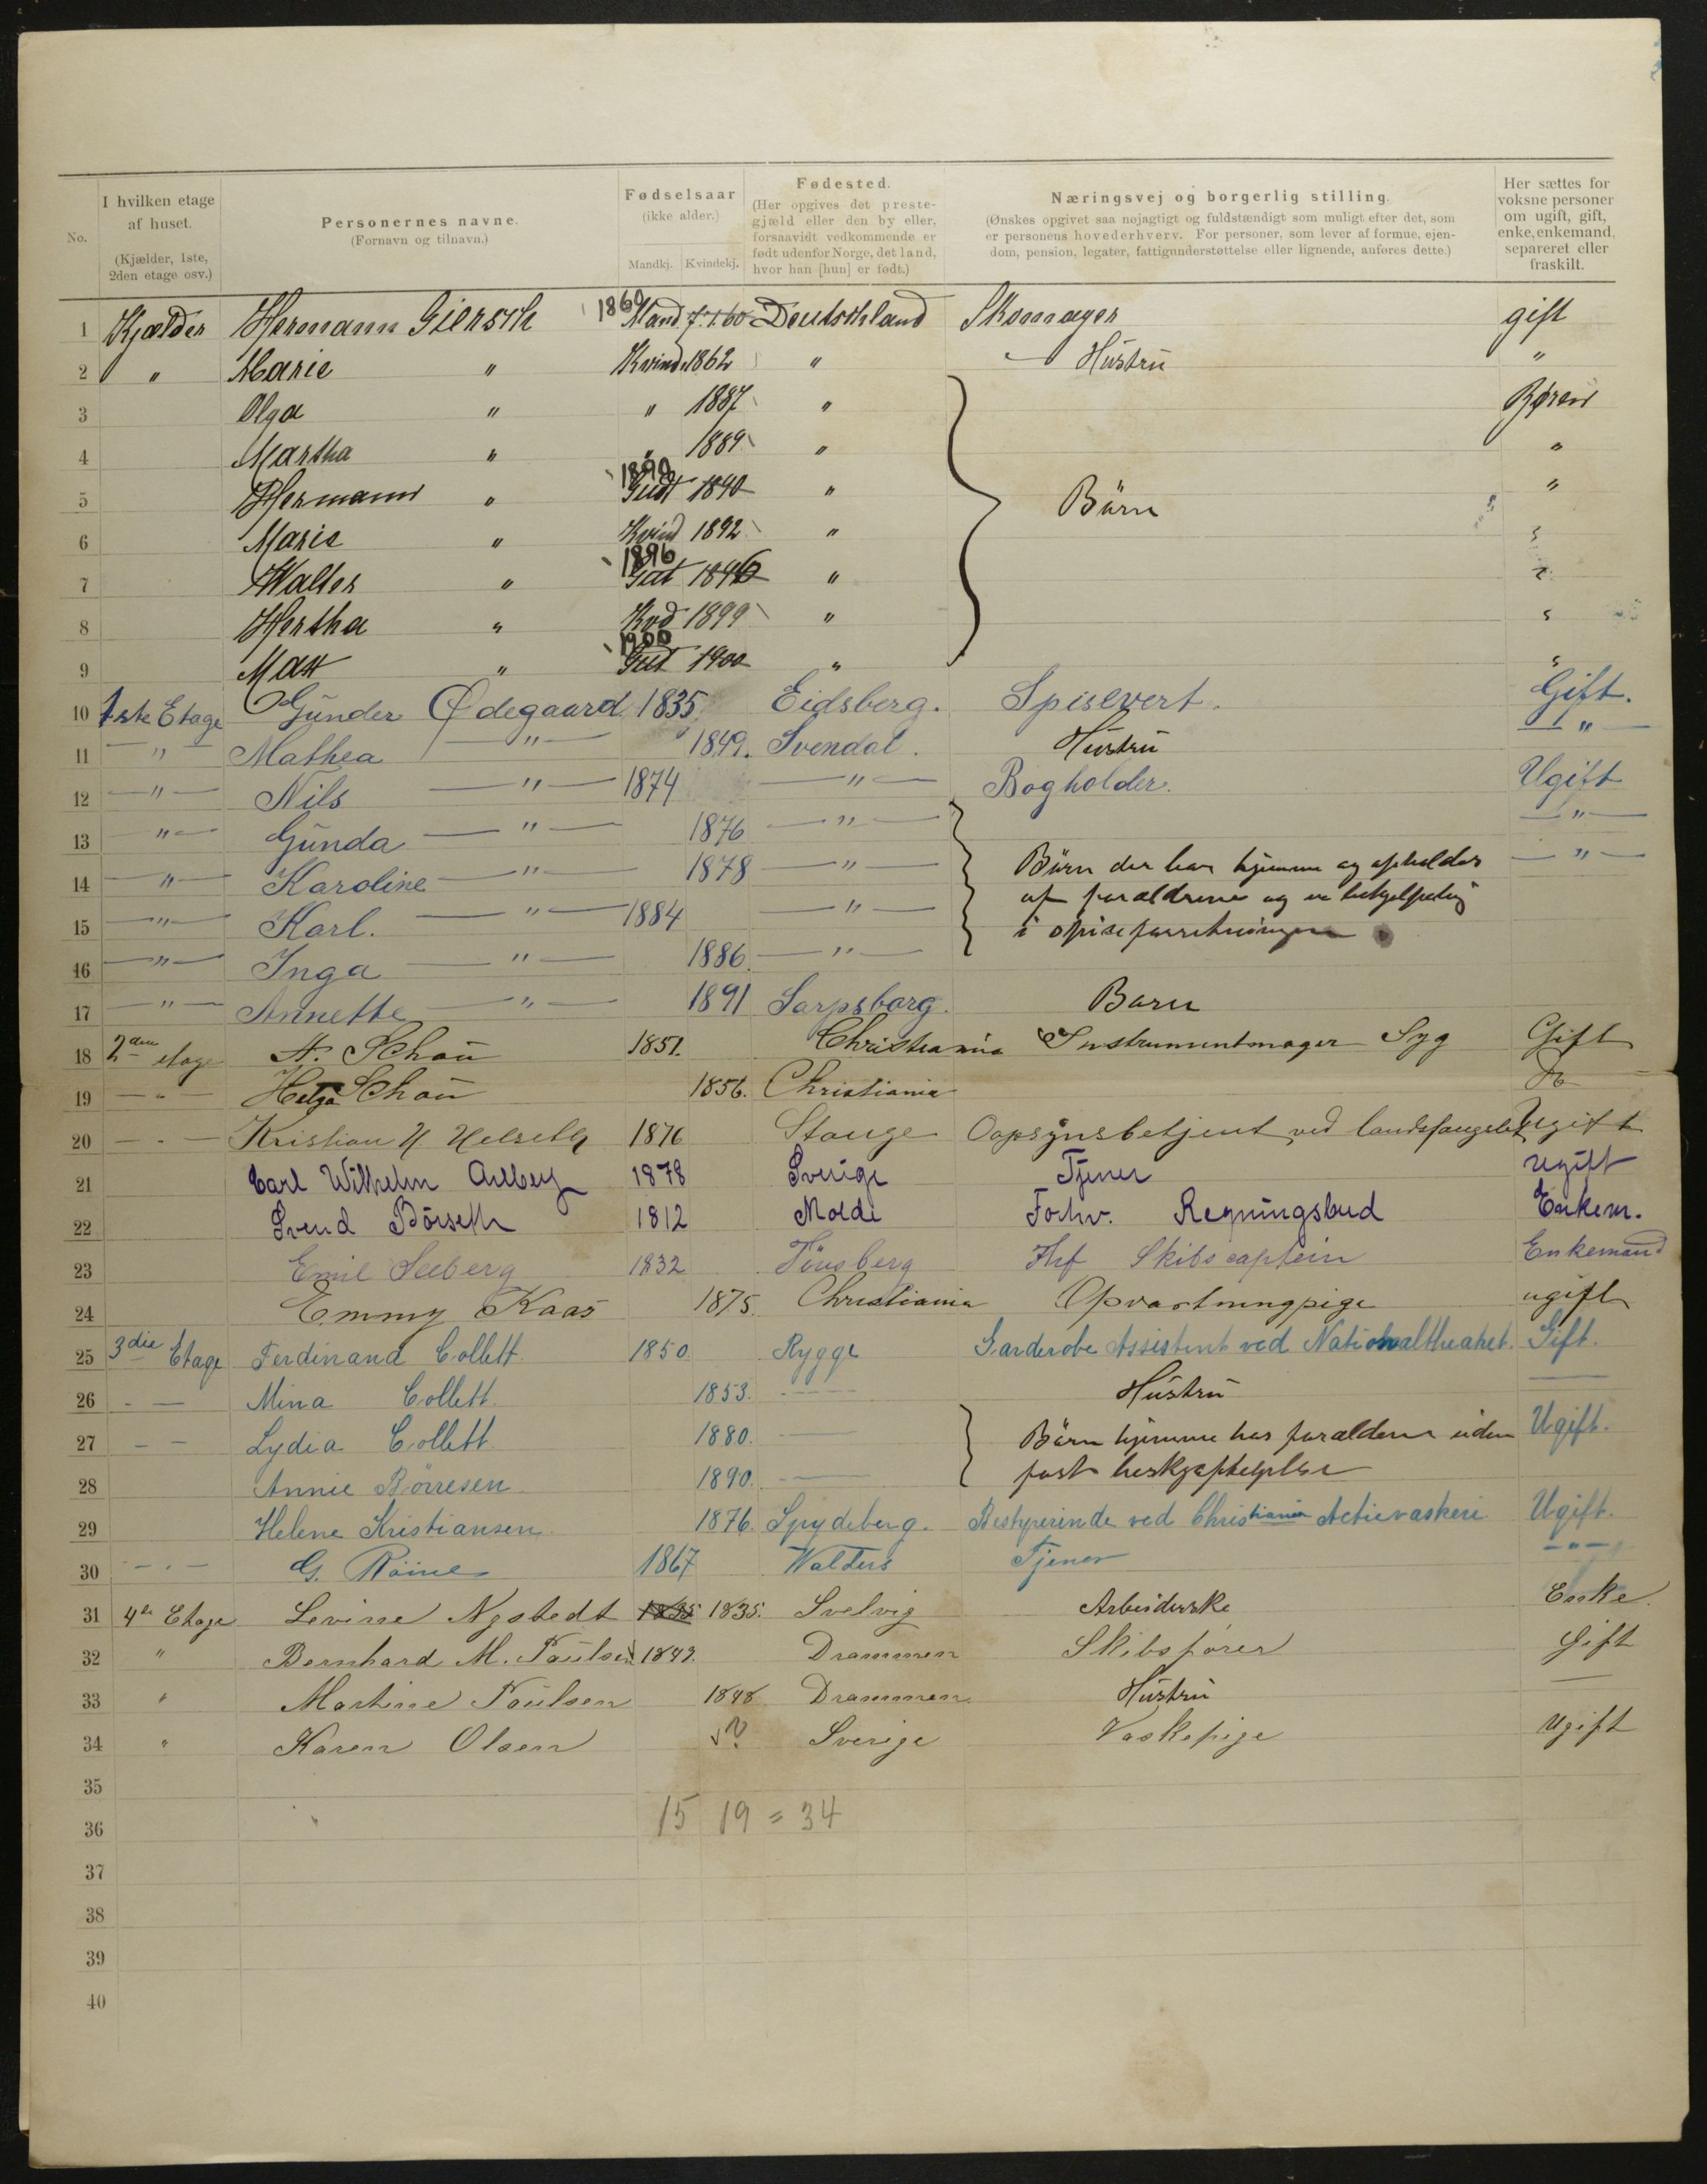 No.
I hvilken etage af huset. (Kjælder, 1ste, 2den etage osv.)
Personernes navne. (Fornavn og tilnavn.)
Fødselsaar (ikke alder.) Mandkj. Kvindekj.
Fødested. (Her opgives det prestegjæld eller den by eller, forsaavidt vedkommende er født udenfor Norge, det land, hvor han [hun] er født.)
Næringsvej og borgerlig stilling. (Ønskes opgivet saa nøjagtigt og fuldstændigt som muligt efter det, som er personens hovederhverv. For personer, som lever af formue, ejendom, pension, legater, fattigunderstøttelse eller lignende, anføres dette.)
Her sættes for voksne personer om ugift, gift, enke, enkemand, separeret eller fraskilt.
1 Kjælder Hermann Giersch 1860 Mand 7.1.60 Deutschland Skomager gift
2 " Marie " Kvind 1862 " Hustru "
3 Olga " " 1887 " Børen
4 Martha " " 1889 " "
5 Hermann " 1890 Gut 1890 " Børn "
6 Marie " Kvind 1892 "
7 Walter " 1896 Gut 1896 "
8 Hertha " Kvd 1899 "
9 Max " 1900 Gut 1900 "
10 1ste Etage Gunder Ødegaard 1835 Eidsberg. Spisevert. Gift.
11 — " — Mathea — " — 1849. Svendal. Hustru — " —
12 — " — Nils — " — 1874 — " — Bogholder. Ugift
13 — " — Gunda — " — 1876 — " — — " —
14 — " — Karoline — " — 1878 — " — Börn der har hjemme og opholdes — " —
15 — " — Karl. — " — 1884 — " — af forældrene og er behjelpelig
i spiseforretningen
16 — " — Inga — " — 1886. — " —
17 — " — Annette — " — 1891 Sarpsborg. Barn
18 2den etage A. Schou 1851. Christiania Instrumentmager Syg Gift
19 — " — Helga Schou 1856. Christiania Do
20 — " — Kristian H Helseth 1876 Stange Oopsynsbetjent ved landsfængslet Ugift
21 Carl Wilhelm 1878 Sverige Tjener ugift
22 Svend Börseth 1812 Molde Forhv. Regningsbud Enkem.
23 Emil Seeberg 1832 Tönsberg Fhf Skibscaptein Enkemand
24 Emmy Kaas 1875. Christiania Opvartningpige ugift
25 3die Etage Ferdinand Collett 1850. Rygge Garderobe Assistent ved Nationaltheatret. Gift.
26 - — Mina Collett. 1853. ---- Hustru —
27 — — Lydia Collett 1880. — Börn hjemme hos forældrene uden Ugift.
28 Annie Börresen 1890. — fast beskjæftigelse
29 Helene Kristiansen 1876. Spydeberg. Bestyrerinde ved Christiania Actievaskeri Ugift.
30 — " — G. 1867 Walders Tjener — " —
31 4de Etage Levine Nystedt 1835 1835. Svelvig Arbeiderske Enke.
32 " Bernhard M. Paulsen 1842. Drammen Skibsfører Gift
33 " Martine Paulsen 1848 Drammen. Hustru —
34 " Karen Olsen ? Sverige Vaskepige Ugift
35
36 15 19 = 34
37
38
39
40